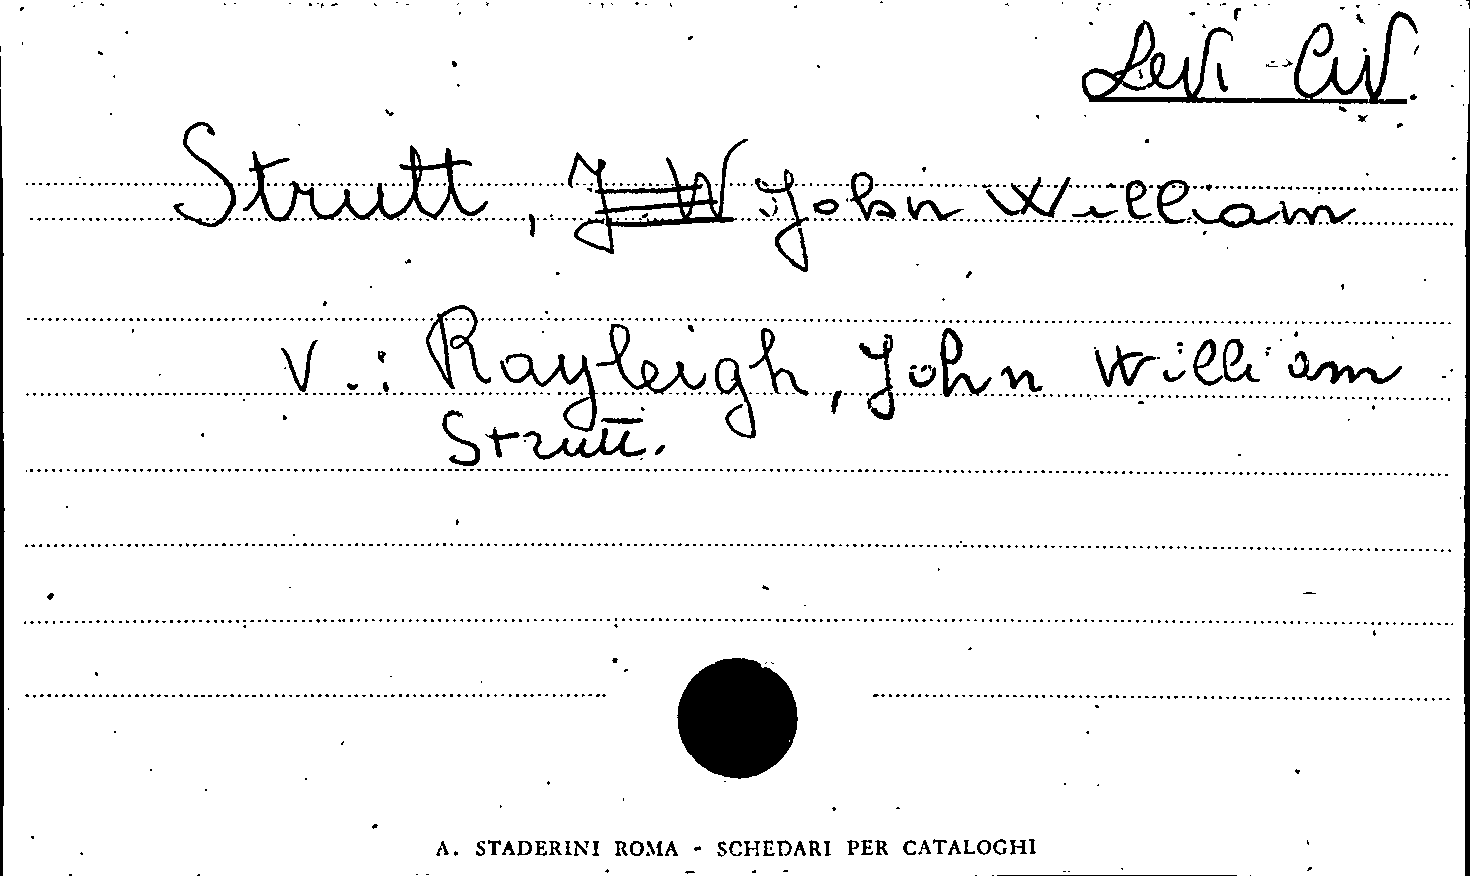 Levi - Civ.
Strutt, J. W John William
V.: Rayleigh, John William
Strutt.
A. STADERINI ROMA - SCHEDARI PER CATALOGHI